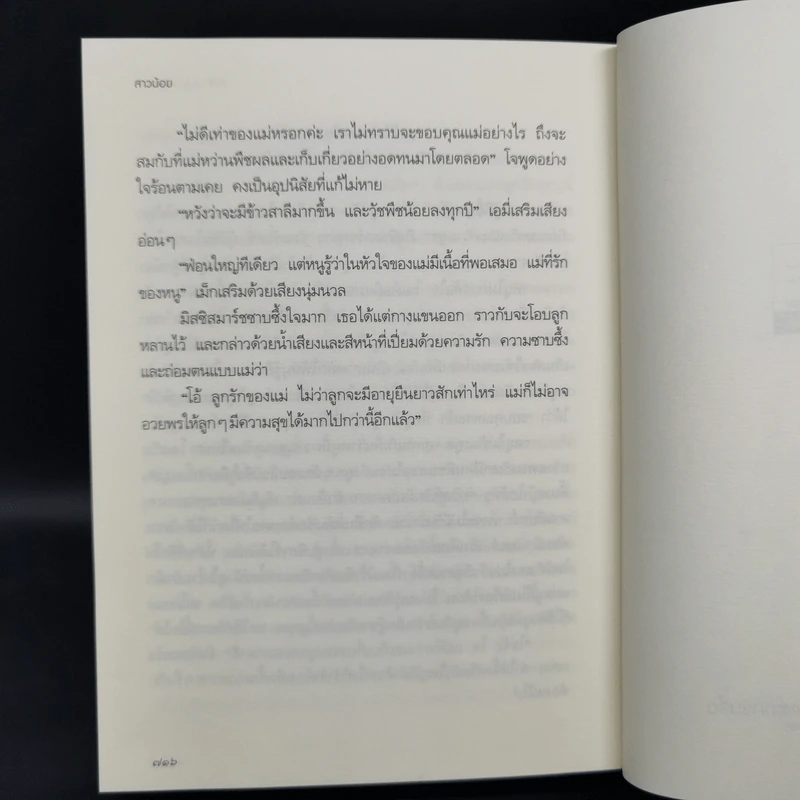 สาวน้อย
“ไม่ดีเท่าของแม่หรอกค่ะ เราไม่ทราบจะขอบคุณแม่อย่างไร ถึงจะ
สมกับที่แม่หว่านพืชผลและเก็บเกี่ยวอย่างอดทนมาโดยตลอด” โจพูดอย่าง
ใจร้อนตามเคย คงเป็นอุปนิสัยที่แก้ไม่หาย
“หวังว่าจะมีข้าวสาลีมากขึ้น และวัชพืชน้อยลงทุกปี” เอมี่เสริมเสียง
อ่อนๆ
“ฟ่อนใหญ่ทีเดียว แต่หนูรู้ว่าในหัวใจของแม่มีเนื้อที่พอเสมอ แม่ที่รัก
ของหนู” เม็กเสริมด้วยเสียงนุ่มนวล
มิสซิสมาร์ชซาบซึ้งใจมาก เธอได้แต่กางแขนออก ราวกับจะโอบลูก
หลานไว้ และกล่าวด้วยน้ำเสียงและสีหน้าที่เปี่ยมด้วยความรัก ความซาบซึ้ง
และถ่อมตนแบบแม่ว่า
“โอ้ ลูกรักของแม่ ไม่ว่าลูกจะมีอายุยืนยาวสักเท่าไหร่ แม่ก็ไม่อาจ
อวยพรให้ลูกๆ มีความสุขได้มากไปกว่านี้อีกแล้ว”
๗๑๖